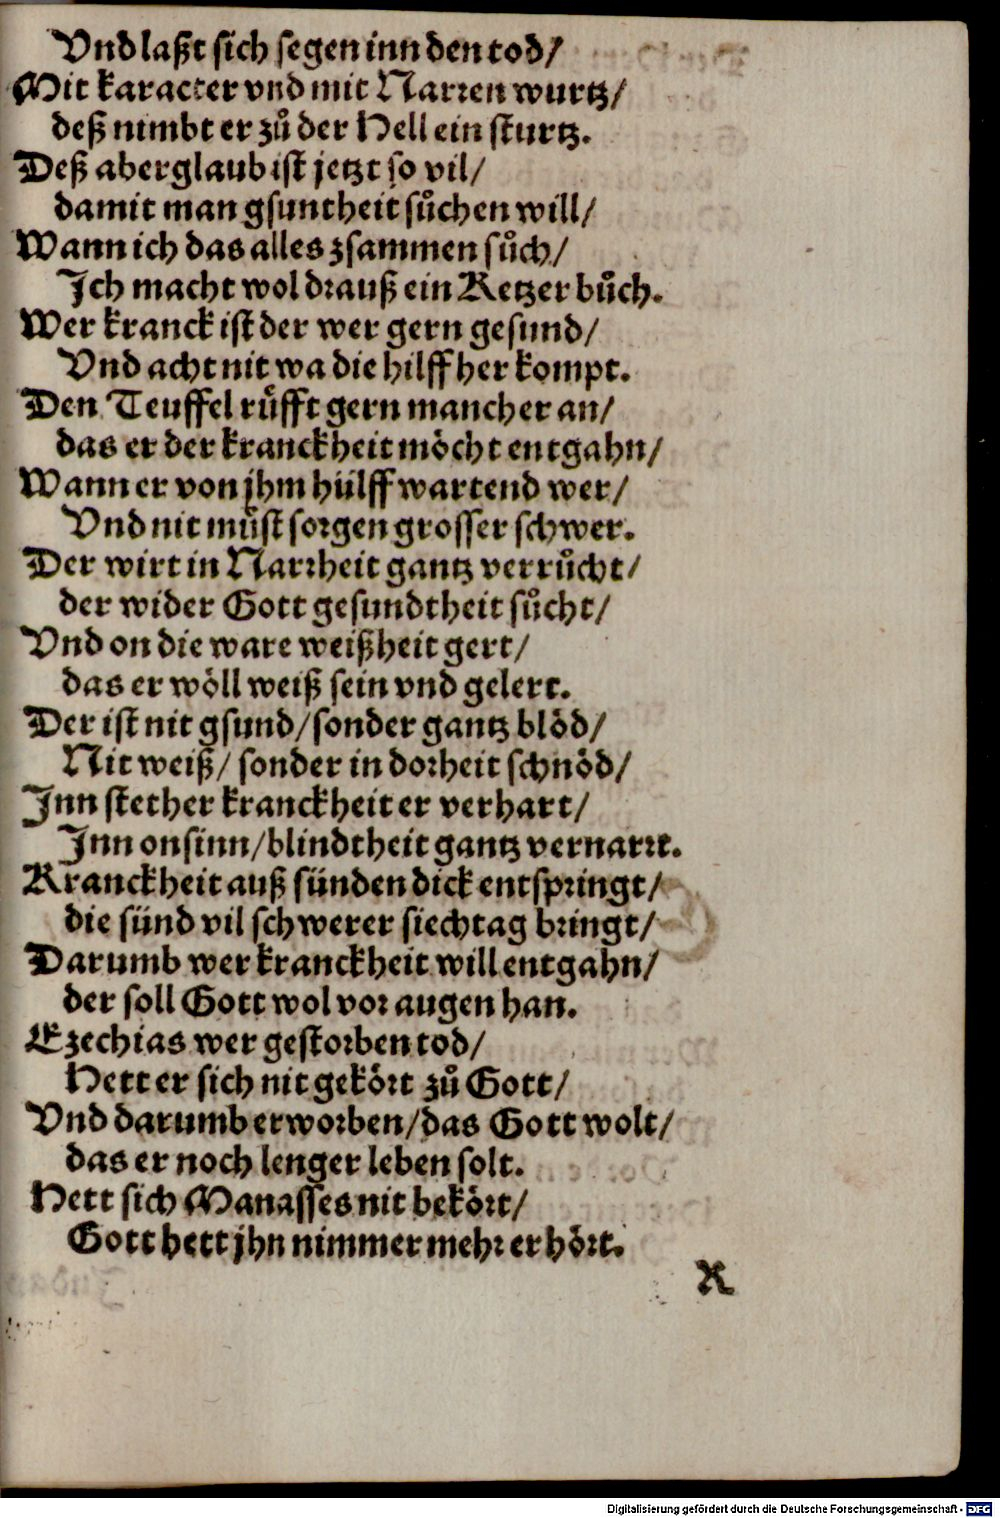 Vnd laßt sich segen inn den tod/
Mit karacter vnd mit Narren wurtz/
deß nimbt er zuͦ der Hell ein sturtz.
Deß aberglaub ist jetzt so vil/
damit man gsuntheit suͦchen will/
Wann ich das alles zsammen suͦch/
Ich macht wol drauß ein Ketzer buͦch.
Wer kranck ist der wer gern gesund/
Vnd acht nit wa die hilff her kompt.
Den Teuffel rüfft gern mancher an/
das er der kranckheit möcht entgahn/
Wann er von jhm hülff wartend wer/
Vnd nit müst sorgen grosser schwer.
Der wirt in Narrheit gantz verruͦcht/
der wider Gott gesundtheit suͦcht/
Vnd on die ware weißheit gert/
das er wöll weiß sein vnd gelert.
Der ist nit gsund/sonder gantz blöd/
Nit weiß/ sonder in dorheit schnöd/
Inn stether kranckheit er verhart/
Inn onsinn/blindtheit gantz vernarrt.
Kranckheit auß sünden dick entspringt/
die sünd vil schwerer siechtag bringt/
Darumb wer kranckheit will entgahn/
der soll Gott wol vor augen han.
Ezechias wer gestorben tod/
Hett er sich nit gekört zuͦ Gott/
Vnd darumb erworben/das Gott wolt/
das er noch lenger leben solt.
Hett sich Manasses nit bekört/
Gott hett jhn nimmer mehr erhört.
K
Digitalisierung gefördert durch die Deutsche Forschungsgemeinschaft - DFG